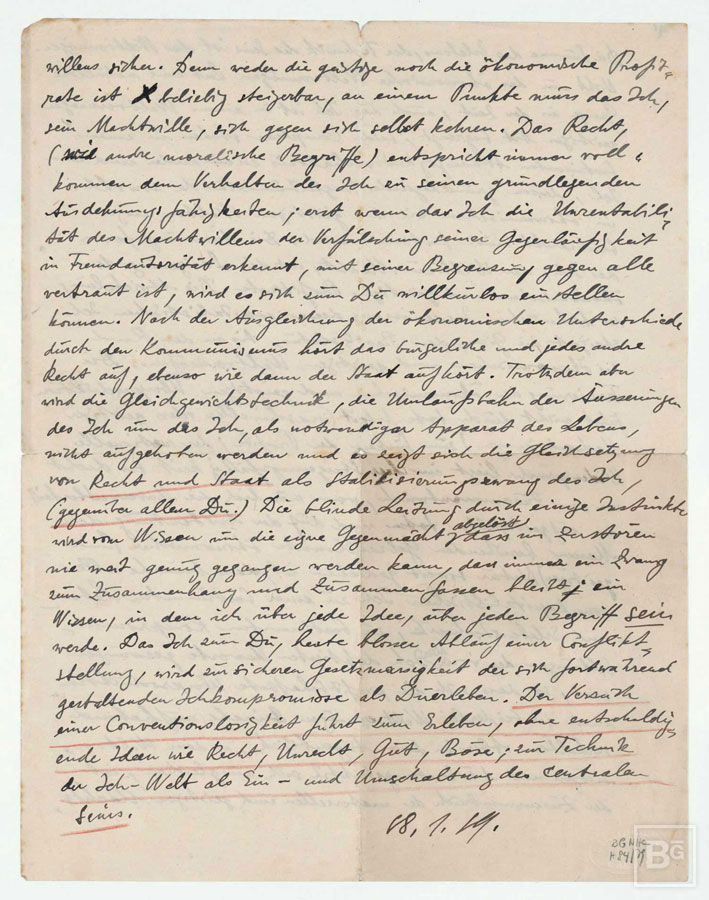 willens sicher. Denn weder die geistige noch die ökonomische Profit-
rate ist beliebig steigerbar, an einem Punkte muss das Ich,
sein Machtwille, sich gegen sich selbst kehren. Das Recht,
(andre moralische Begriffe) entspricht immer voll-
kommen dem Verhalten des Ich zu seinen grundlegenden
Ausdehnungsfähigkeiten; erst wenn das Ich die Unrentabili-
tät des Machtwillens der Verfälschung seiner Gegenläufigkeit
in Fremdautorität erkennt, mit seiner Begrenzung gegen alle
vertraut ist, wird es sich zum Du willkürlos einstellen
können. Nach der Ausgleichung der ökonomischen Unterschiede
durch den Kommunismus hört das bürgerliche und jedes andre
Recht auf, ebenso wie dann der Staat aufhört. Trotzdem aber
wird die Gleichgewichtstechnik, die Umlaufsbahn der Äusserungen
des Ich um das Ich, als notwendiger Apparat des Lebens,
nicht aufgehoben werden und es zeigt sich die Gleichsetzung
von Recht und Staat als Stabilisierungszwang des Ich,
(gegenüber allem Du.) Die blinde Leitung durch einige Instinkte
wird vom Wissen um die eigne Gegenmacht abgelöst, dass im Zerstören
nie weit genug gegangen werden kann, dass immer ein Zwang
zum Zusammenhang und Zusammenfassen bleibt; ein
Wissen, in dem ich über jede Idee, über jeden Begriff sein
werde. Das Ich zum Du, heute blosser Ablauf einer Conflikt-
stellung, wird zur sicheren Gesetzmässigkeit der sich fortwährend
gestaltenden Ichkompromisse als Duerleben. Der Versuch
einer Conventionslosigkeit führt zum Erleben, ohne entschuldig-
ende Ideen wie Recht, Unrecht, Gut, Böse; zur Technik
der Ich-Welt als Ein- und Umschaltung des centralen
Seins.
18.1.19.
BG